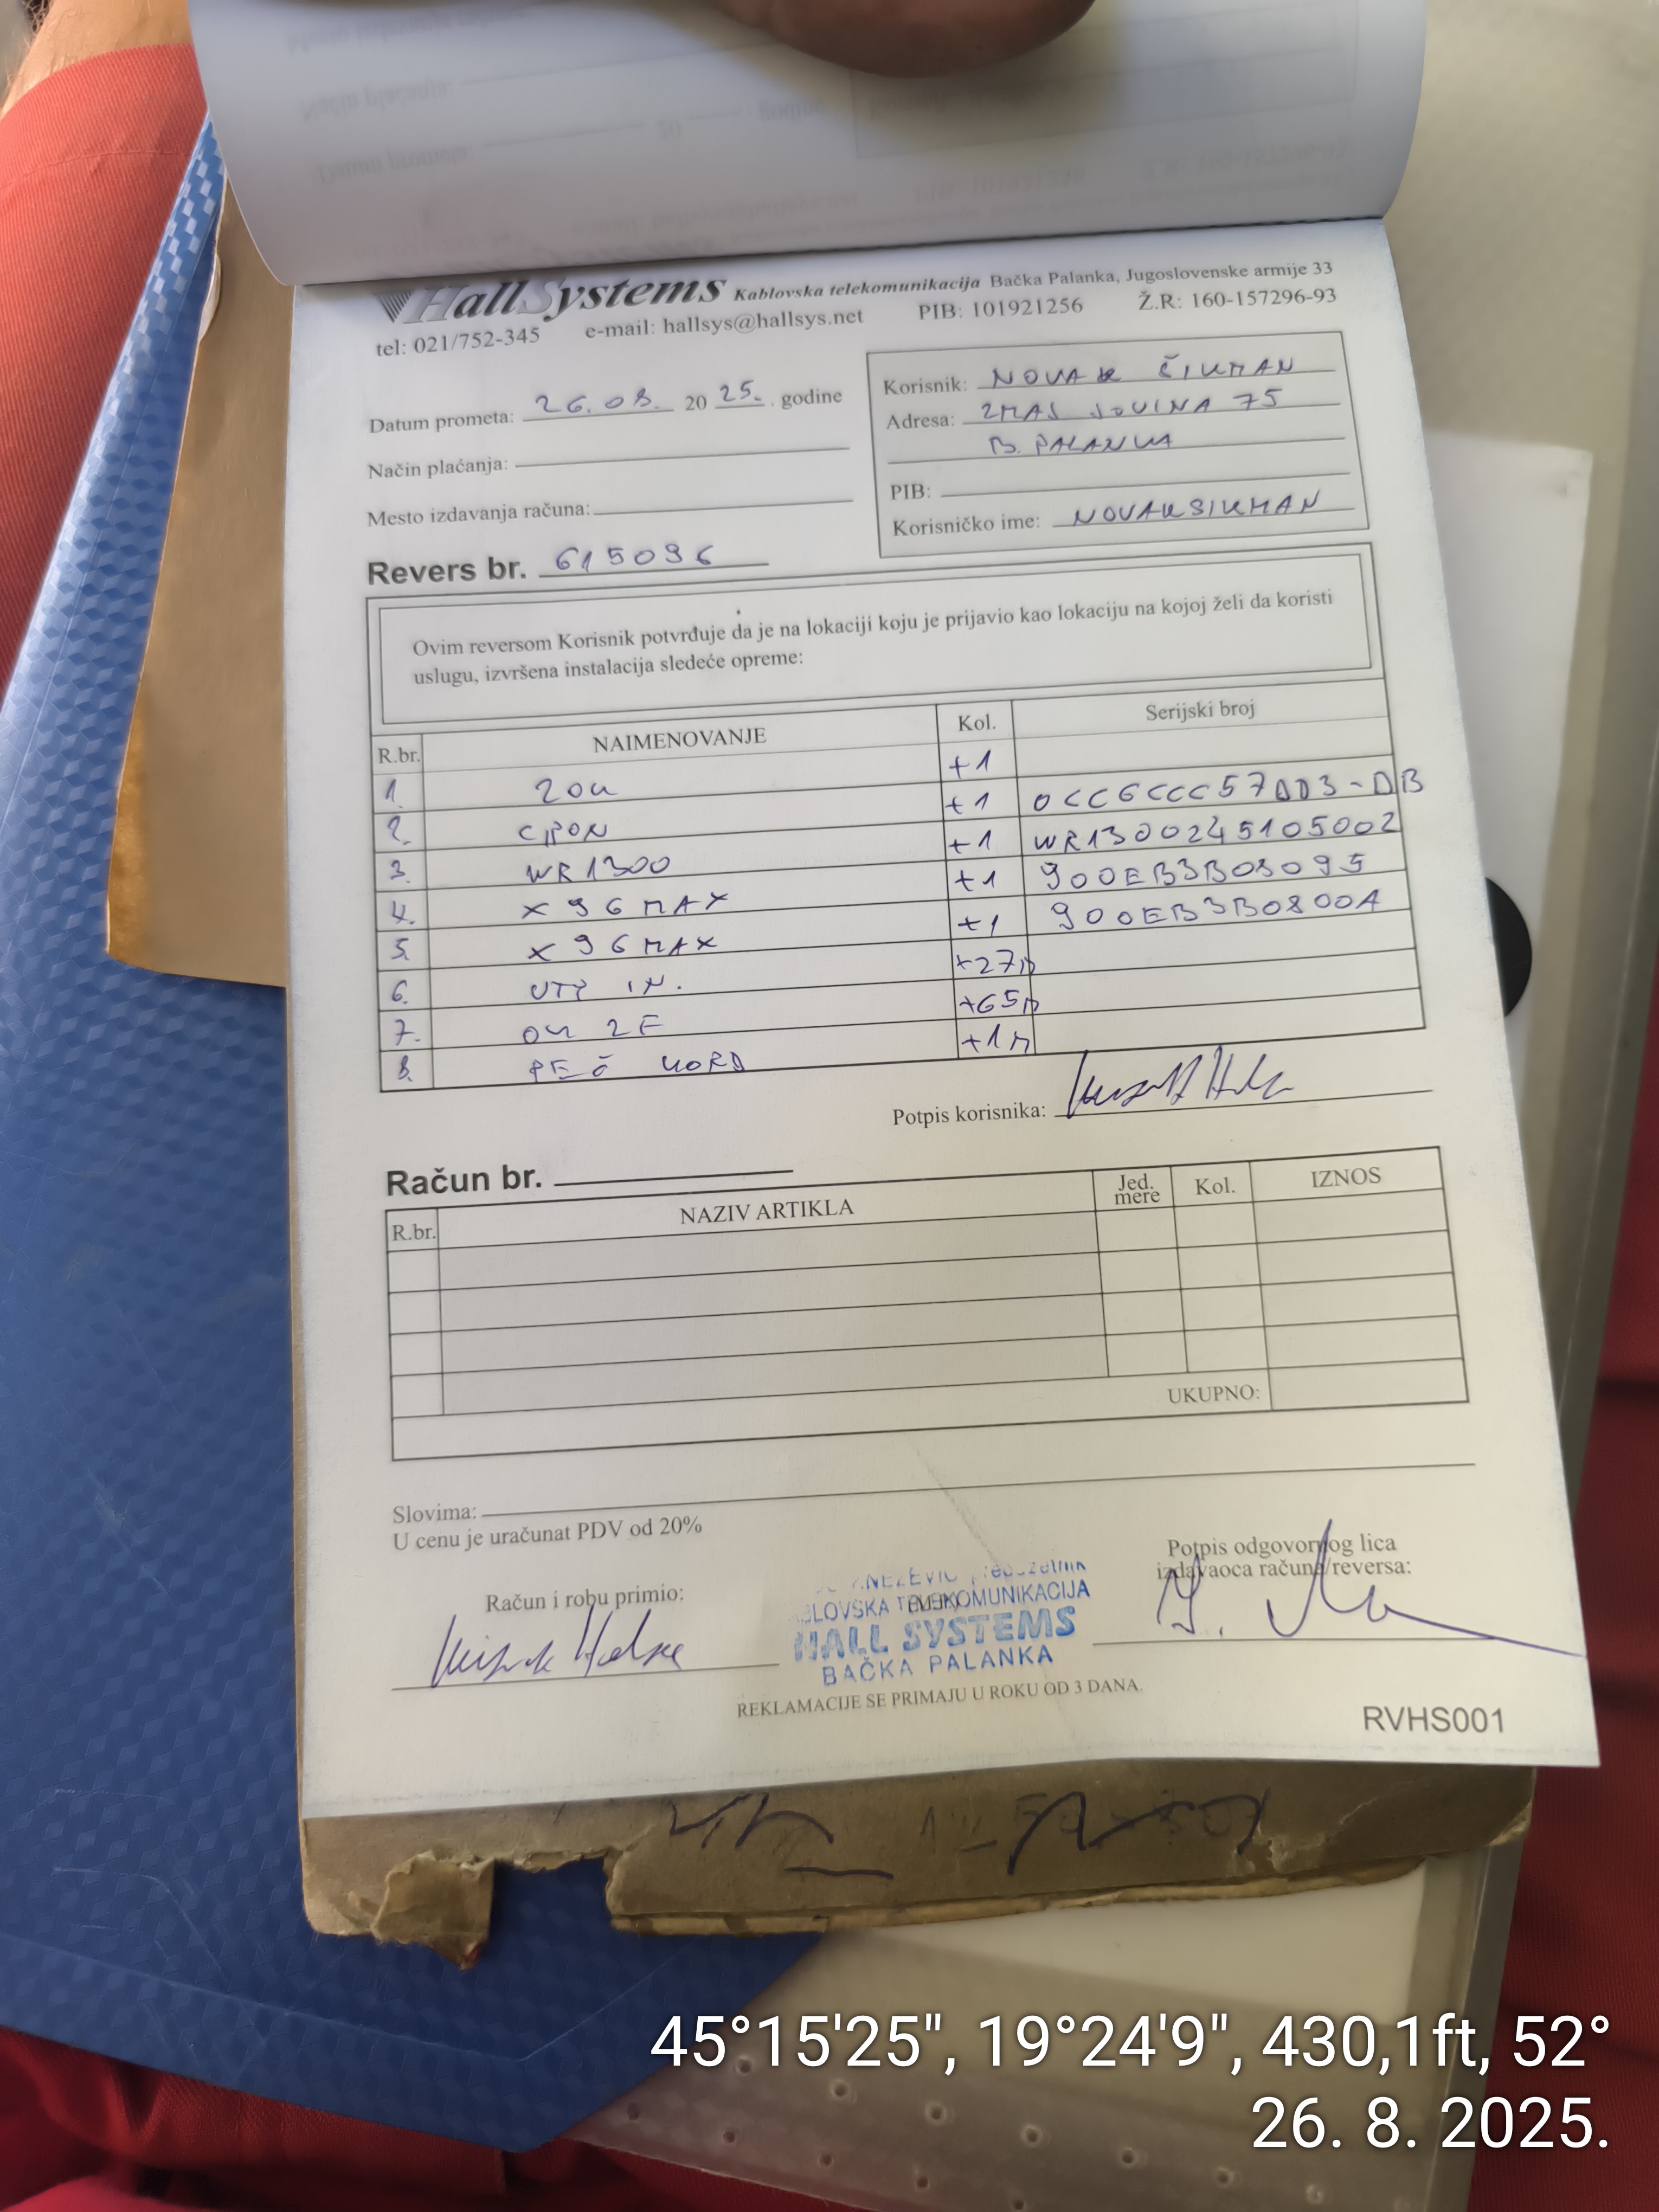 HallSystems Kablovska telekomunikacija Bačka Palanka, Jugoslovenske armije 33
tel: 021/752-345 e-mail: hallsys@hallsys.net PIB: 101921256 Ž.R: 160-157296-93
Datum prometa: 26.08. 20 25. godine
Način plaćanja:
Mesto izdavanja računa:
Korisnik: NOVAK ČIKMAN
Adresa: ZMAJ JOVINA 75
B. PALANKA
PIB:
Korisničko ime: NOVAKSIKMAN
Revers br. 615096
Ovim reversom Korisnik potvrđuje da je na lokaciji koju je prijavio kao lokaciju na kojoj želi da koristi
uslugu, izvršena instalacija sledeće opreme:
R.br. NAIMENOVANJE Kol. Serijski broj
1. ZOK +1
2. GPON +1 0CC6CCC57DD3-DB
3. WR1300 +1 WR1300245105002
4. X96MAX +1 900EB3B08095
5. X96MAX +1 900EB3B0800A
6. UTP IN. +27m
7. OK 2F +65m
8. PEČ KORD +1m
Potpis korisnika:
Račun br.
R.br. NAZIV ARTIKLA Jed. mere Kol. IZNOS
UKUPNO:
Slovima:
U cenu je uračunat PDV od 20%
Račun i robu primio:
Potpis odgovornog lica
izdavaoca računa/reversa:
TELEKOMUNIKACIJA
HALL SYSTEMS
BAČKA PALANKA
REKLAMACIJE SE PRIMAJU U ROKU OD 3 DANA.
RVHS001
45°15'25", 19°24'9", 430,1ft, 52°
26. 8. 2025.